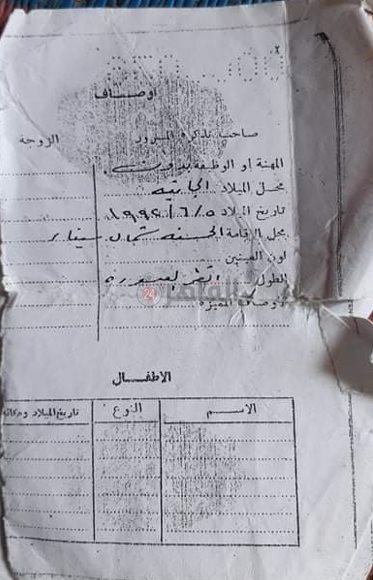 أوصاف
صاحب تذكرة المرور الزوجة
المهنة أو الوظيفة بدون
محل الميلاد
تاريخ الميلاد ١٩٩٤/٦/٥
محل الإقامة الحسنه شمال سيناء
لون العينين
الطول انظر الصوره
الأوصاف المميزة
القاهرة 24
الاطفال
الاسم النوع تاريخ الميلاد ومكانه